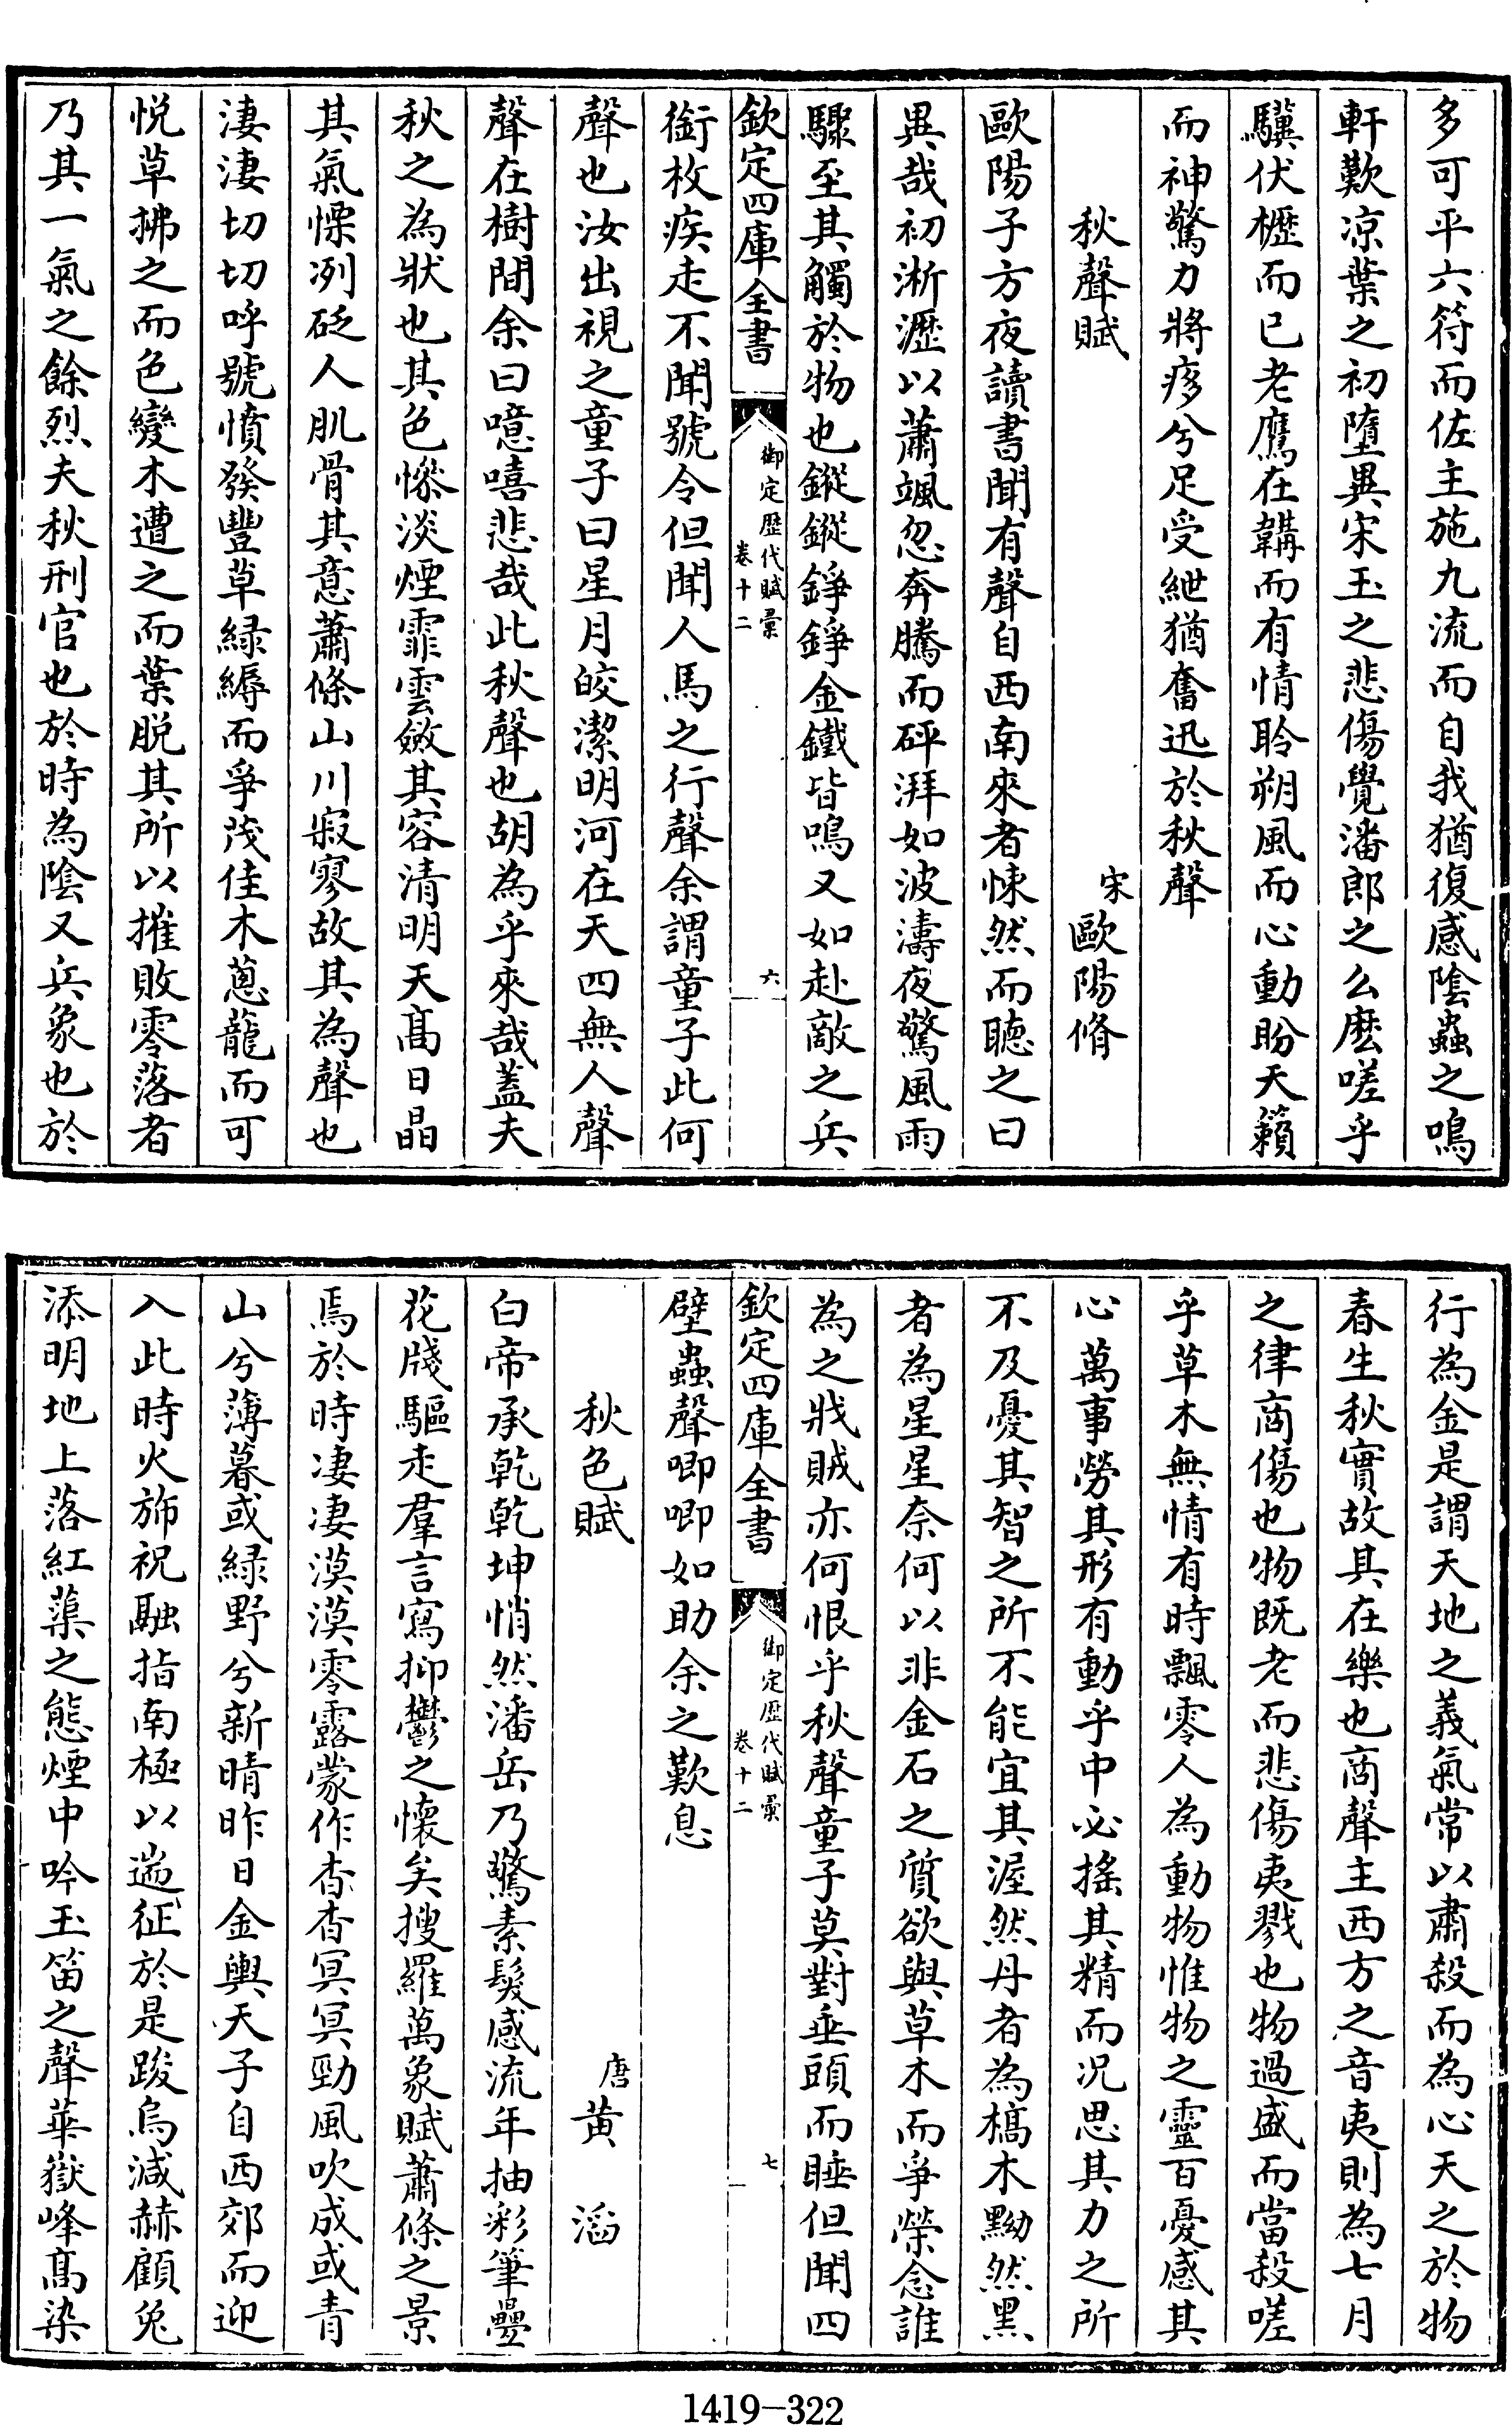 多可平六符而佐主施九流而自我猶復感陰蟲之鳴
軒歎凉葉之初墮異宋玉之悲傷覺潘郎之么麽嗟乎
驥伏櫪而已老鷹在韝而有情聆朔風而心動盼天籟
而神驚力將痑兮足受紲猶奮迅於秋聲
秋聲賦
宋歐陽脩
歐陽子方夜讀書聞有聲自西南來者悚然而聽之曰
異哉初淅瀝以蕭颯忽奔騰而砰湃如波濤夜驚風雨
驟至其觸於物也鏦鏦錚錚金鐵皆鳴又如赴敵之兵
欽定四庫全書
御定歷代賦彙
卷十二
六
銜枚疾走不聞號令但聞人馬之行聲余謂童子此何
聲也汝出視之童子曰星月皎潔明河在天四無人聲
聲在樹間余曰噫嘻悲哉此秋聲也胡為乎來哉蓋夫
秋之為狀也其色慘淡煙霏雲斂其容清明天髙日晶
其氣慄冽砭人肌骨其意蕭條山川寂寥故其為聲也
淒淒切切呼號憤發豐草緑縟而爭茂佳木蔥蘢而可
悦草拂之而色變木遭之而葉脱其所以摧敗零落者
乃其一氣之餘烈夫秋刑官也於時為陰又兵象也於
行為金是謂天地之義氣常以肅殺而為心天之於物
春生秋實故其在樂也商聲主西方之音夷則為七月
之律商傷也物既老而悲傷夷戮也物過盛而當殺嗟
乎草木無情有時飄零人為動物惟物之靈百憂感其
心萬事勞其形有動乎中必搖其精而况思其力之所
不及憂其智之所不能宜其渥然丹者為槁木黝然黑
者為星星奈何以非金石之質欲與草木而爭榮念誰
為之戕賊亦何恨乎秋聲童子莫對垂頭而睡但聞四
欽定四庫全書
御定歷代賦彙
卷十二
七
壁蟲聲唧唧如助余之歎息
秋色賦
唐黄滔
白帝承乾乾坤悄然潘岳乃驚素髮感流年抽彩筆疊
花牋驅走羣言寫抑鬱之懷矣搜羅萬象賦蕭條之景
焉於時淒淒漠漠零露蒙作杳杳冥冥勁風吹成或青
山兮薄暮或緑野兮新晴昨日金輿天子自西郊而迎
入此時火斾祝融指南極以遄征於是踆烏減赫顧兔
添明地上落紅蕖之態煙中吟玉笛之聲華嶽峰髙染
1419-322